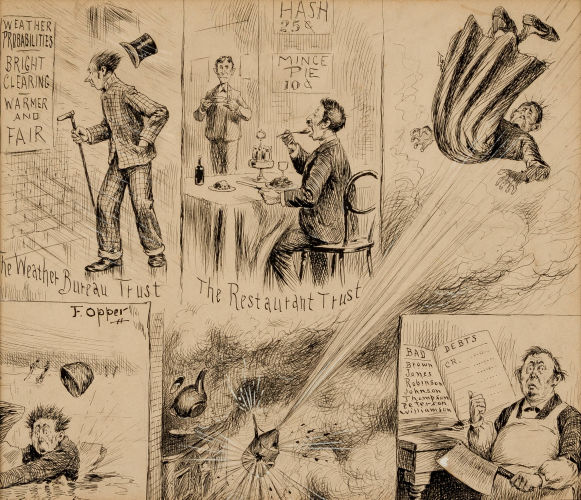 WEATHER
PROBABILITIES
BRIGHT
CLEARING
WARMER
AND
FAIR
The Weather Bureau Trust
HASH
25¢
MINCE
PIE
10¢
The Restaurant Trust
F. Opper
BAD DEBTS
CR.
Brown
Jones
Robinson
Johnson
Thompson
Peterson
Williamson